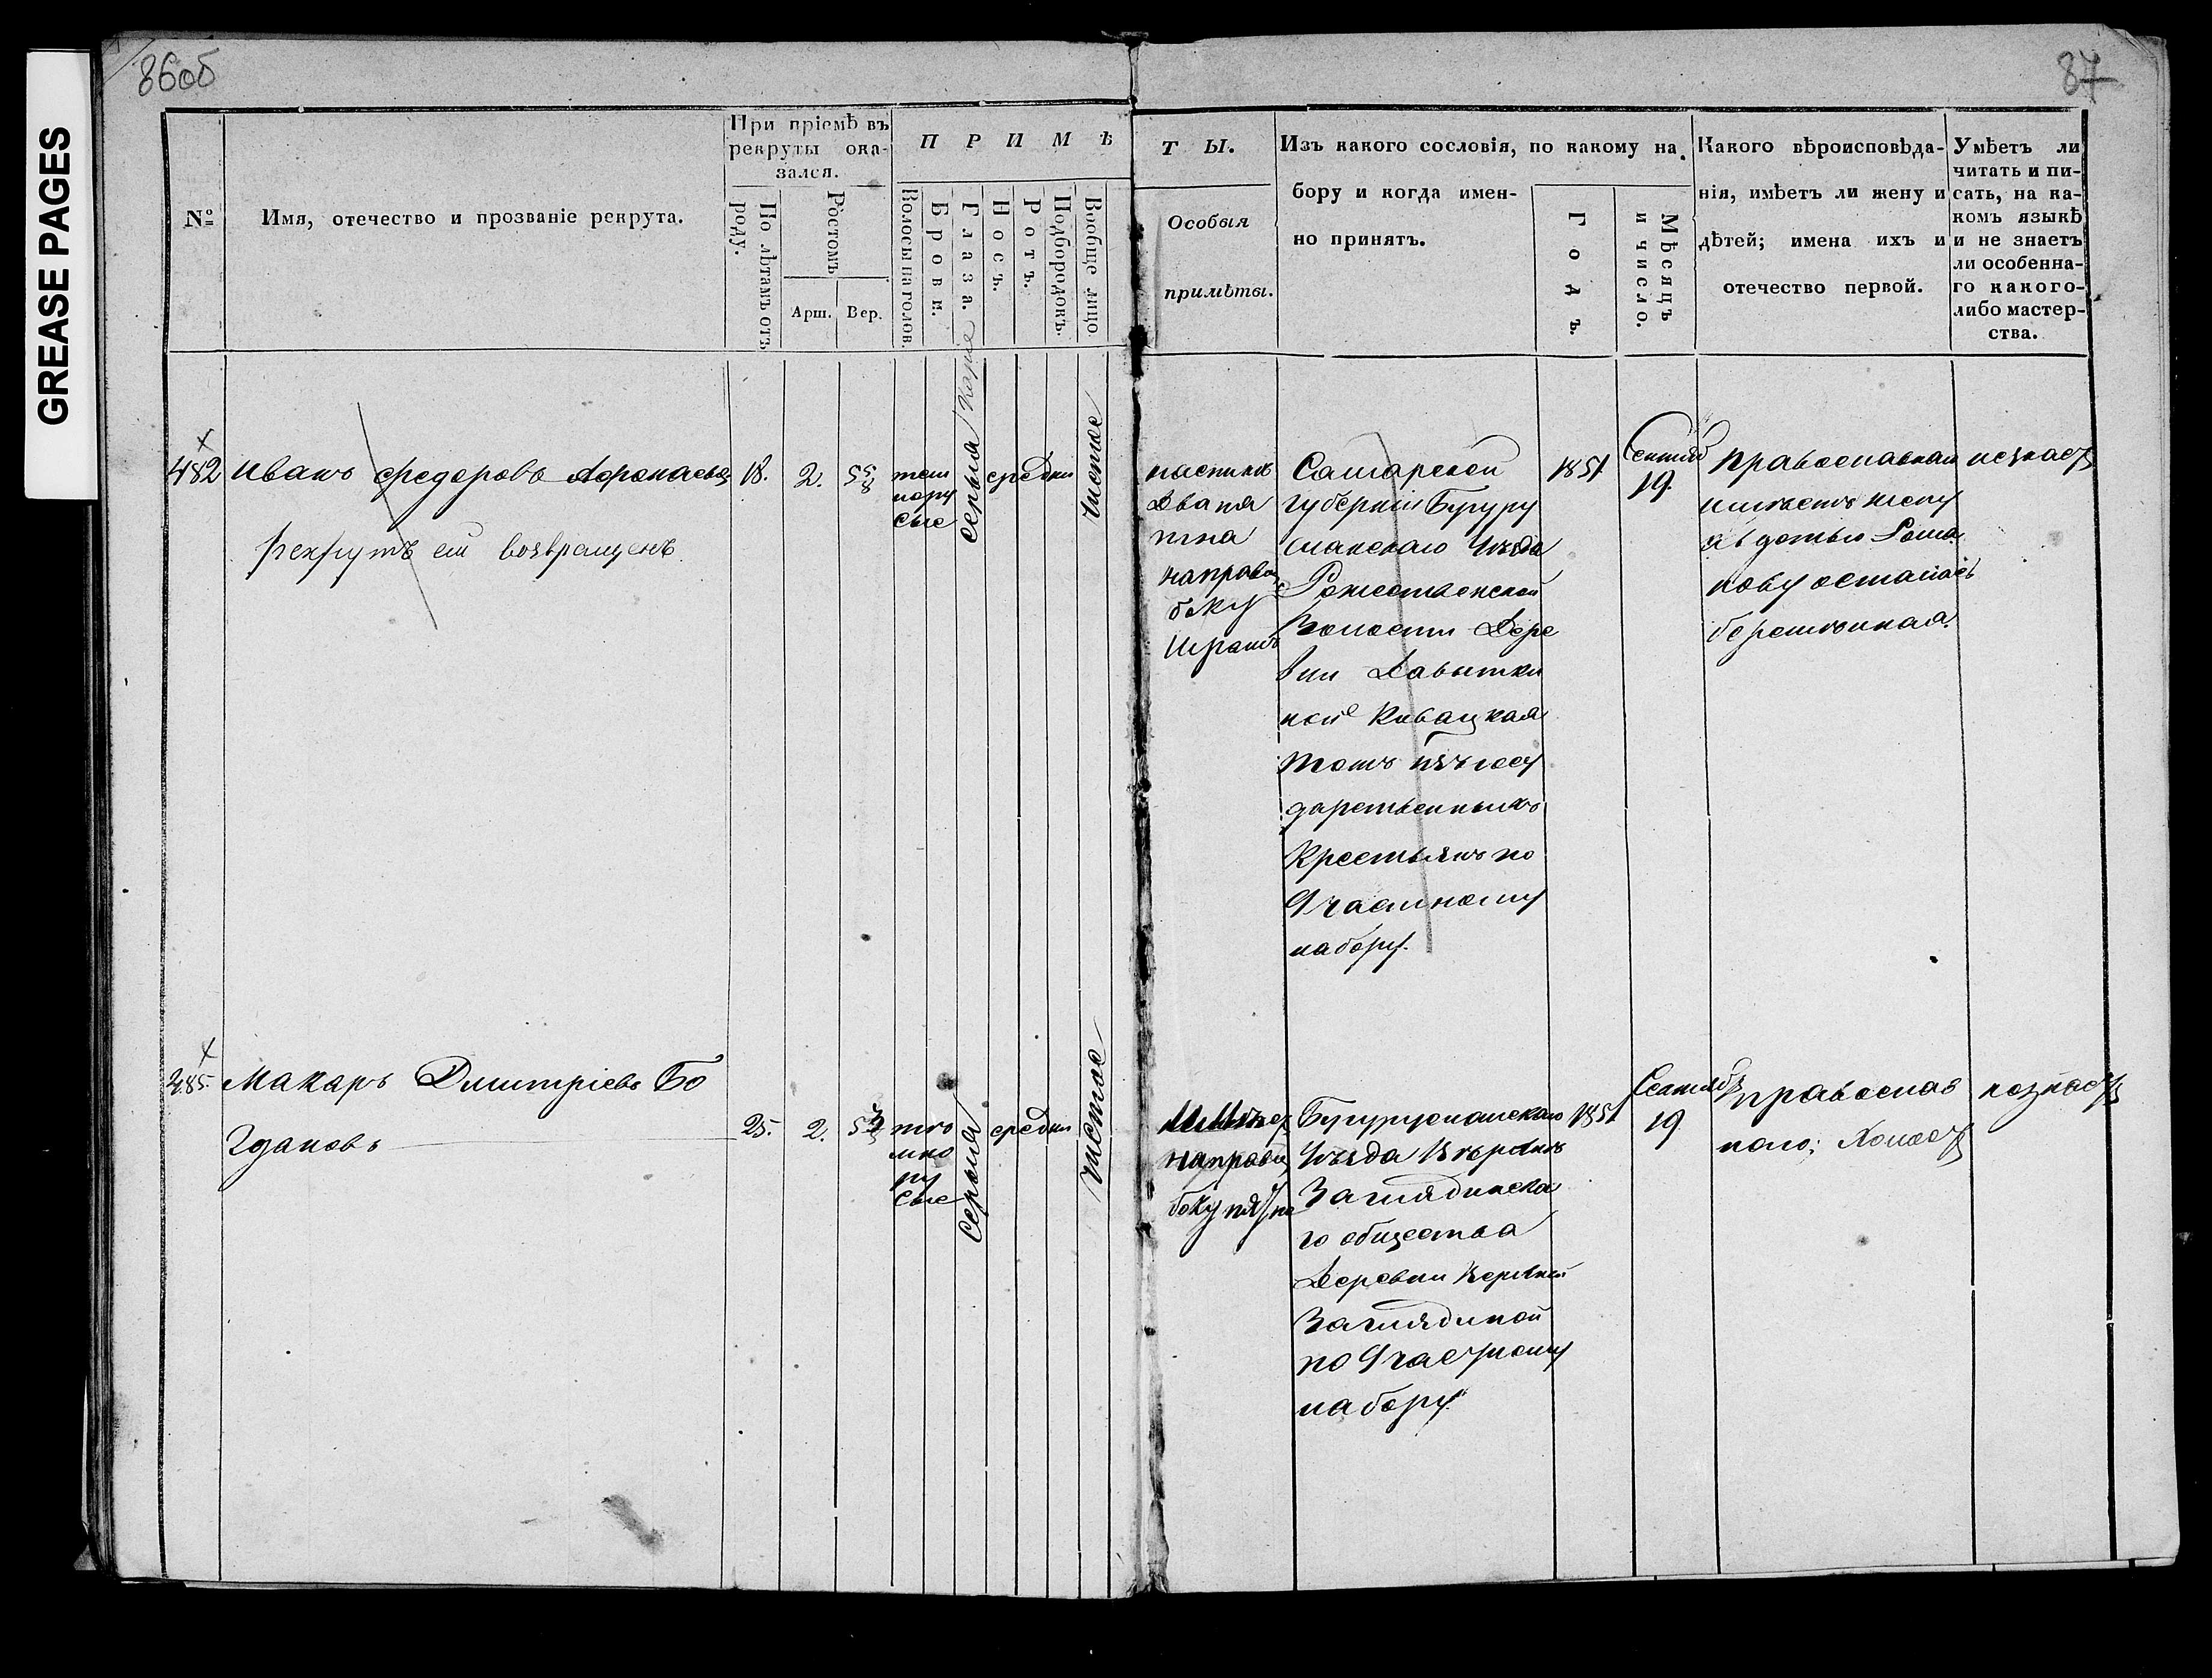 GREASE PAGES
86об
87
№
Имя, отечество и прозваніе рекрута.
При пріемѣ въ
рекруты ока-
зался.
По лѣтамъ отъ
роду.
Ростомъ
Арш.
Вер.
ПРИМѢ
Волосы на голов.
Брови.
Глаза.
Носъ.
Ротъ.
Подбородокъ.
Вообще лицо.
ТЫ.
Особыя
примѣты.
Изъ какого сословія, по какому на-
бору и когда имен-
но принятъ.
Годъ.
Мѣсяцъ
и число.
Какого вѣроисповѣда-
нія, имѣетъ ли жену и
дѣтей; имена ихъ и
отечество первой.
Умѣетъ ли
читать и пи-
сать, на ка-
комъ языкѣ
и не знаетъ
ли особенна-
го какого-
либо мастер-
ства.
482
Иванъ Федоровъ Афонасьев
Рекрутъ сей возвращенъ
18.
2.
5 5/8
тем
нору
сые
серыя
карие
средни
чистое
Два пя
тна
направо
боку
шрамъ
Самарской
губерніи Бугуру
сланскаго Уѣзда
Рожественской
Волости Дере
вни Давытки
ной
тожъ изъ госу
дарственныхъ
Крестьянъ по
9 частному
набору.
1851
Сентяб
19.
Православнаи
имѣетъ жену
Авдотью Рома
нову осталась
беременная.
незнает
485
Макаръ Дмитріевъ Бо
гдановъ
25.
2.
тьо
мно
ру
сые
Серыя
средни
чистое
направо
боку пятно
Бугурусланскаго
Уѣзда Верхнѣ
Заглядинска
го общества
Деревни Верхней
Заглядиной
по 9 частному
набору
1851
Сентяб
19
православ
наго; Холост
незнает